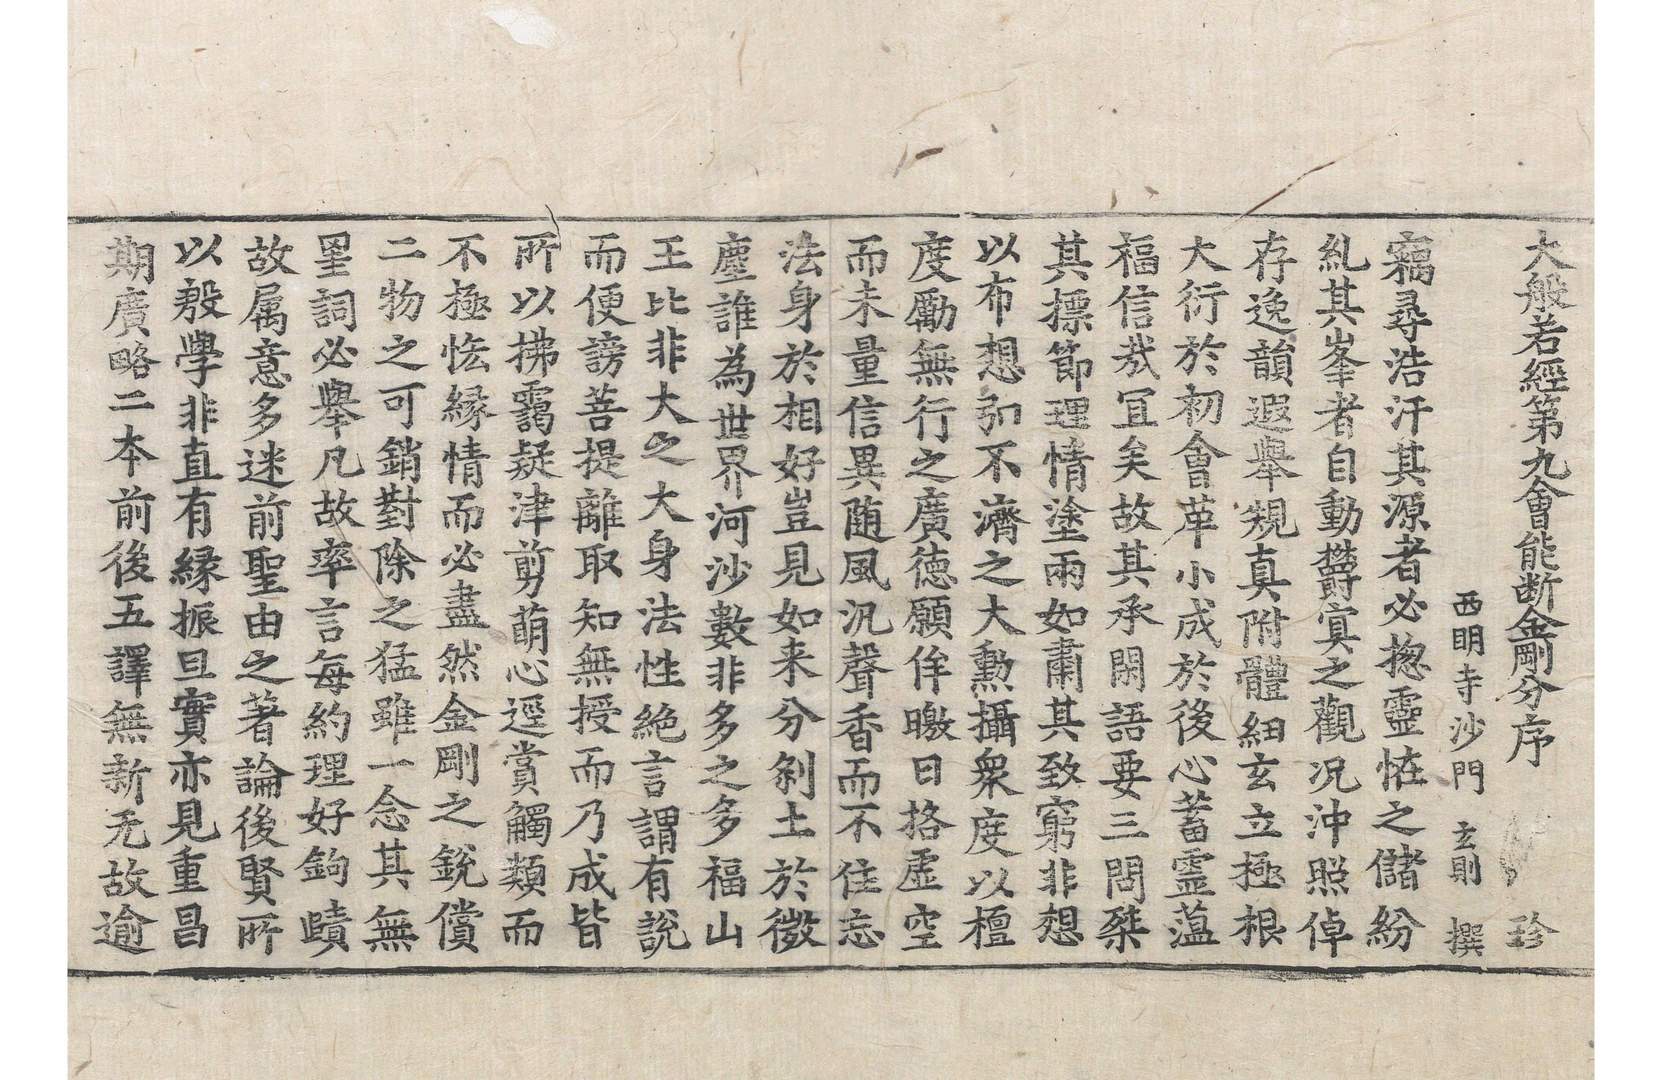 大般若經第九會能斷金剛分序 珍
西明寺沙門 玄則 撰
竊尋浩汗其源者必揔靈恠之儲紛
糺其峯者自動欝㝠之觀况沖照倬
存逸韻遐舉規真附體細玄立極根
大衍於初會革小成於後心蓄靈蘊
福信㢤冝矣故其承閑語要三問桀
其摽節理情塗兩如肅其致窮非想
以布想弘不濟之大勳攝衆度以檀
度勵無行之廣德願侔曒日格虛空
而未量信異随風汎聲香而不住忘
法身於相好豈見如来分剎土於微
塵誰為世界河沙數非多之多福山
王比非大之大身法性絶言謂有說
而便謗菩提離取知無授而乃成皆
所以拂靄疑津剪萌心逕賞觸類而
不極恡緣情而必盡然金剛之銳償
二物之可銷對除之猛雖一念其無
罣詞必舉凡故率言每約理好鉤賾
故属意多迷前聖由之著論後賢所
以殷學非直有緣振旦實亦見重昌
期廣略二本前後五譯無新无故逾